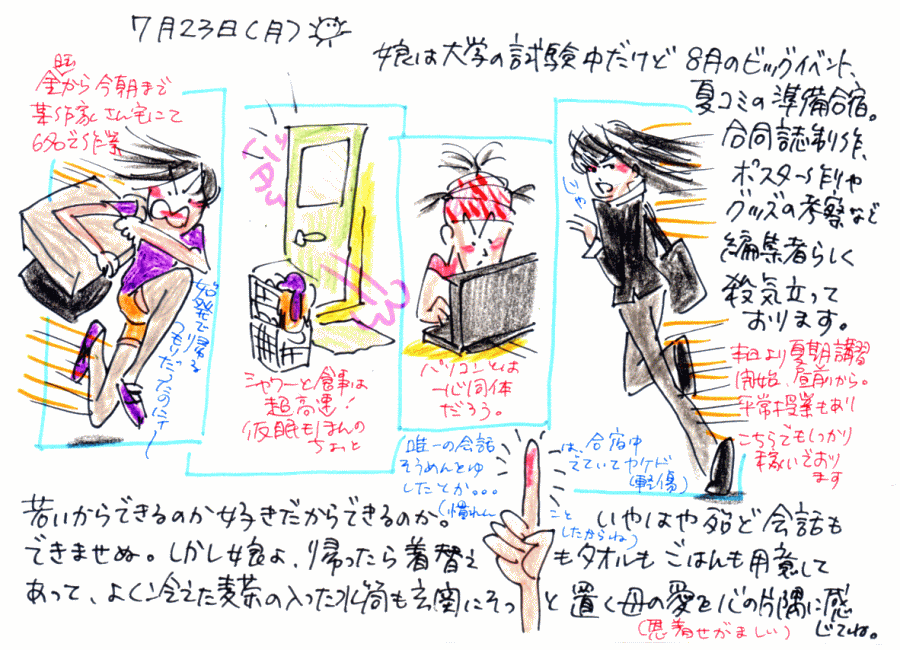 7月23日(月)
娘は大学の試験中だけど 8月のビッグイベント、
夏コミの準備合宿。
合同誌制作、
ポスター作りや
グッズの考察など
編集者らしく
殺気立って
おります。
金から今朝まで
某作家さん宅にて
作業
始発で帰る
つもりだったのにィ〜
シャワーと食事は
超高速!
仮眠もほんの
ちょと
パソコンとは
一心同体
だろう。
じゃ
本日より夏期講習
開始、昼前から。
平常授業もあり
こちらでもしっかり
稼いでおり
ます
唯一の会話
そうめんとゆ
したとか。。。
は、合宿中
ゆでていてヤケド
(軽傷)
こと
したからね)
若いからできるのか好きだからできるのか。
いやはや殆ど会話も
できませぬ。しかし娘よ、帰ったら着替え
もタオルもごはんも用意して
あって、よく冷えた麦茶の入った水筒も玄関にそっ
と置く母の愛を心の片隅に感
じてね。
(恩着せがましい)